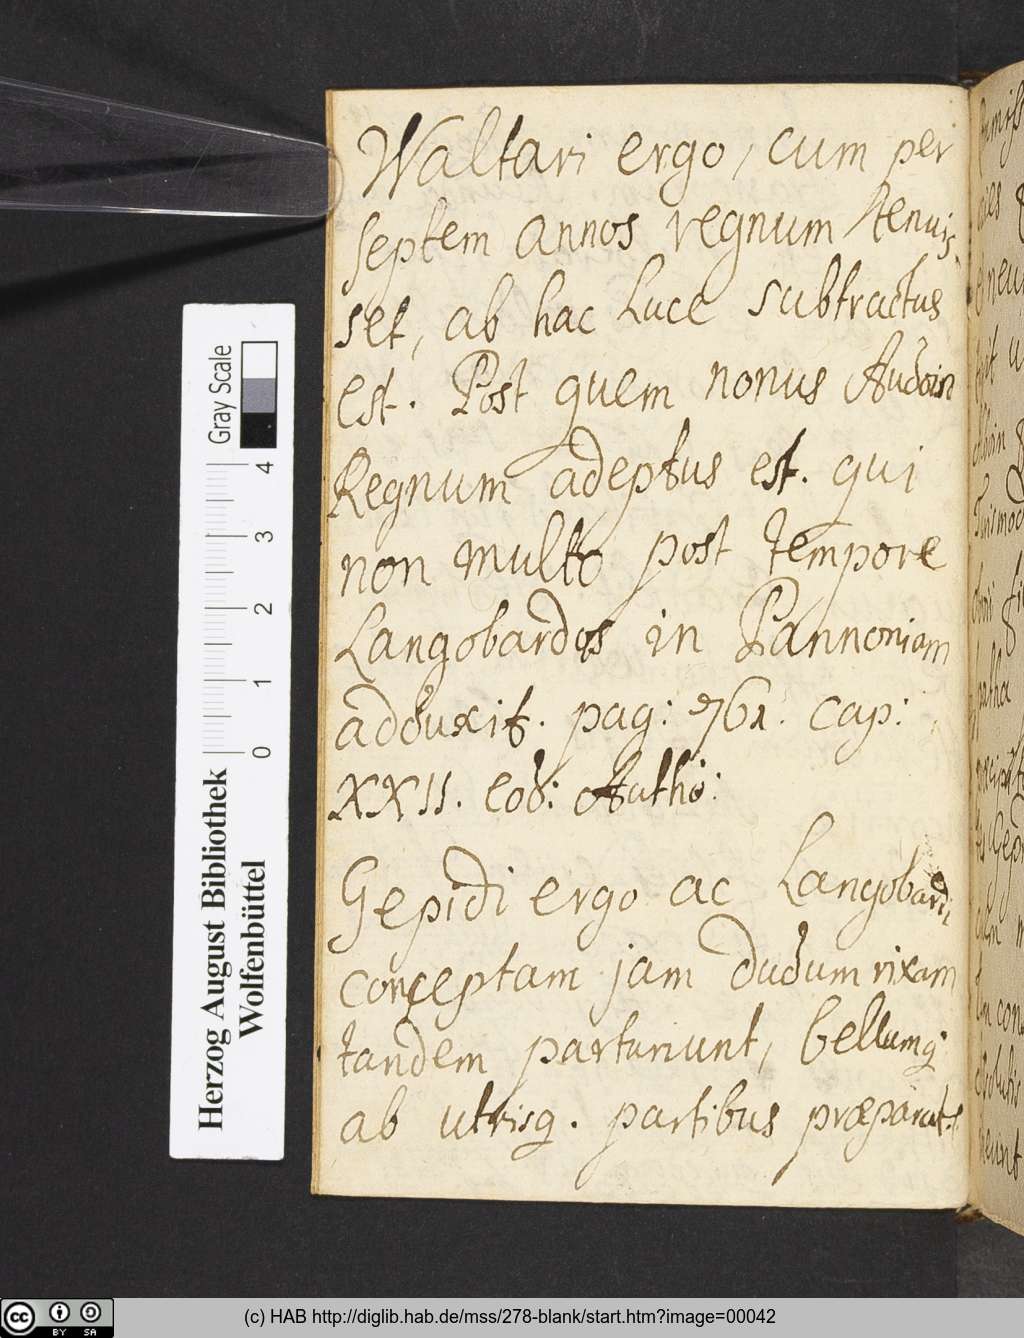 Waltari ergo, cum per
septem annos regnum tenuis
set, ab hac Luce subtractus
est. Post quem nonus Audoin
Regnum adeptus est. qui
non multo post tempore
Langobardos in Pannoniam
adduxit. pag: 761. cap:
XXII. eod: Autho:
Gepidi ergo ac Langobardi
conceptam jam dudum rixam
tandem parturiunt, bellumq
ab utrisq. partibus præparat.
Gray Scale
4
3
2
1
0
Herzog August Bibliothek
Wolfenbüttel
cc BY SA
(c) HAB http://diglib.hab.de/mss/278-blank/start.htm?image=00042